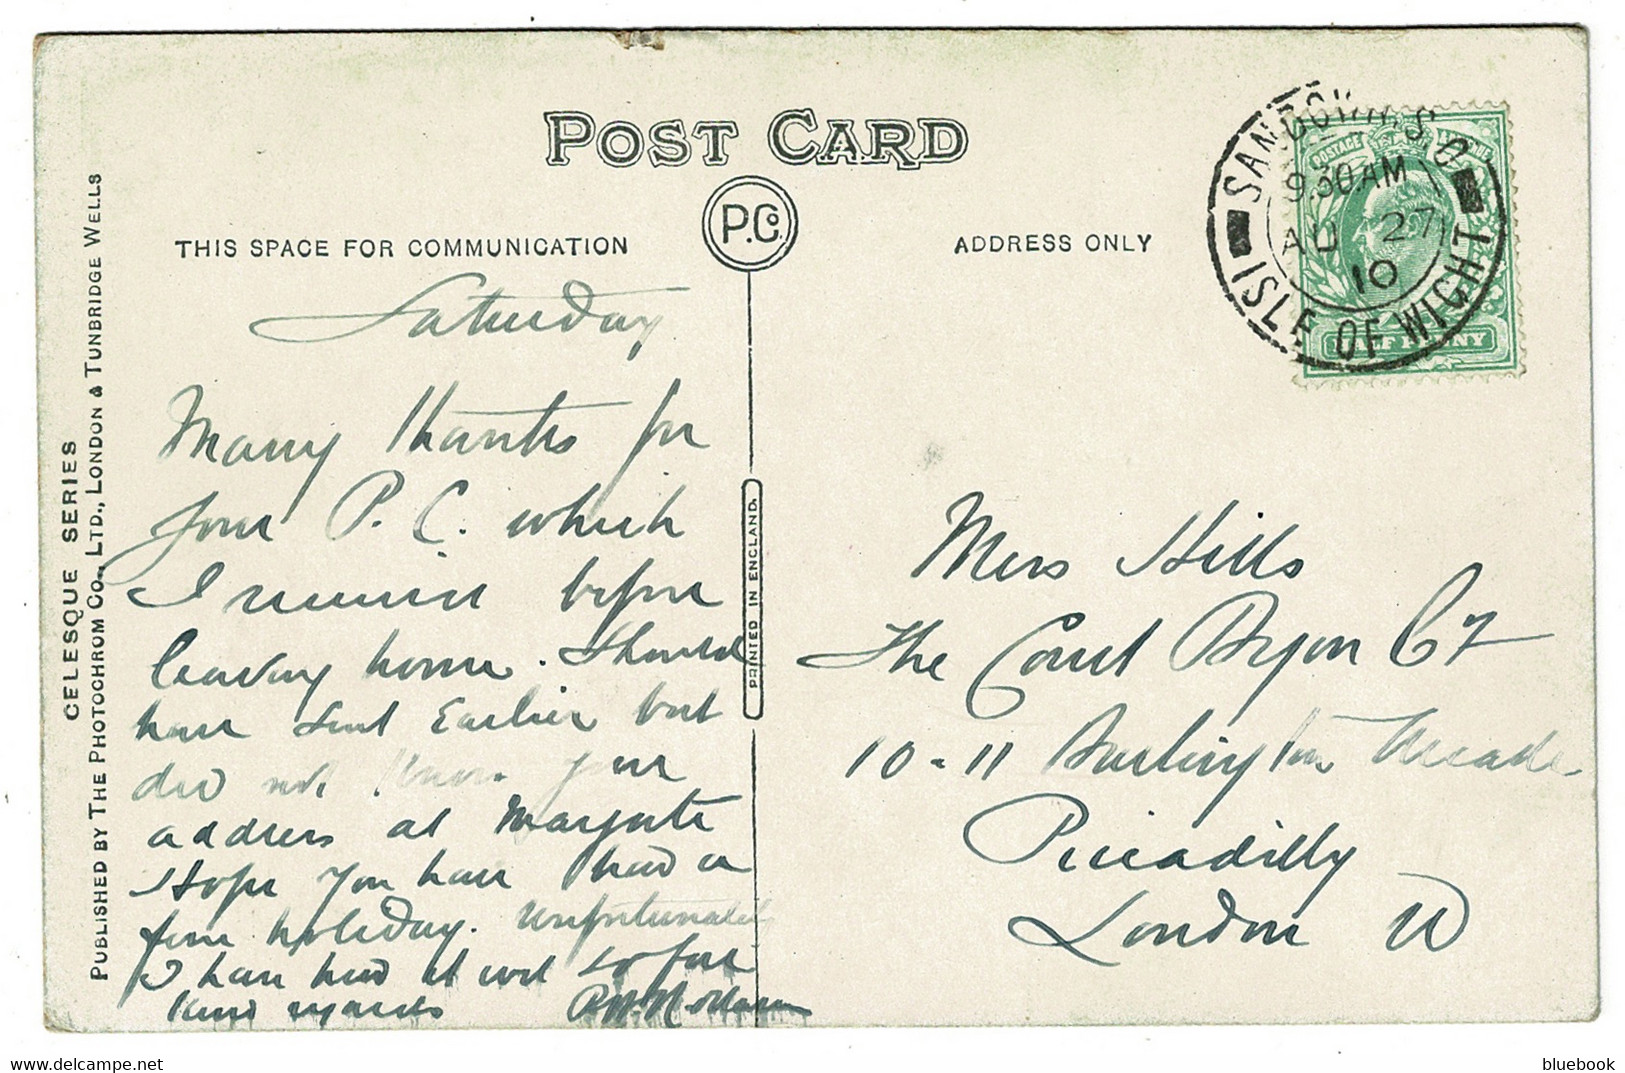 POST CARD
P.Co.
THIS SPACE FOR COMMUNICATION
ADDRESS ONLY
CELESQUE SERIES
PUBLISHED BY THE PHOTOCHROM CO., LTD., LONDON & TUNBRIDGE WELLS
PRINTED IN ENGLAND.
Saturday
Many thanks for
your P. C. which
I received before
leaving home. Should
have sent Earlier but
did not know your
address at Margate
Hope you have had a
fine holiday. Unfortunately
I have had it wet so far
Kind regards
SANDOWN S.O
9.30 AM
AU 27
10
ISLE OF WIGHT
POSTAGE REVENUE
HALF PENNY
Miss Hills
The Court
10-11 Burlington Arcade
Piccadilly
London W
bluebook